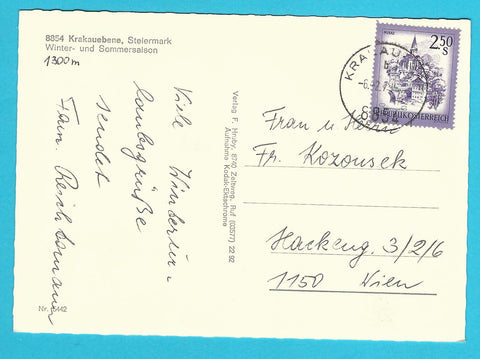 8854 Krakauebene, Steiermark
Winter- und Sommersaison
1300m
Viele Winterur-
laubsgrüße
sendet
Fam.
Nr.
Verlag F. Hruby, 8740 Zeltweg, Ruf (03577) 22 92
Aufnahme Kodak-Ektachrome
2.50
S
REPUBLIK ÖSTERREICH
8854
Frau u Herrn
Fr. Kozousek
Hackeng. 3/2/6
1150 Wien